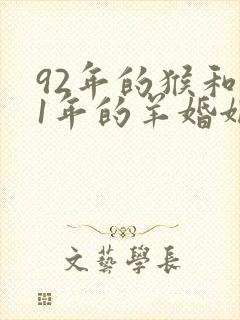 92年的猴和
1年的羊婚
文藝學長